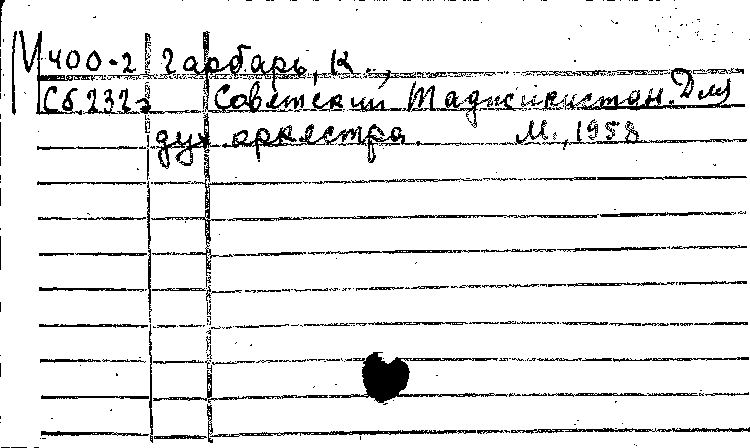 М 400-2 Гарбарь, К.,
Сб.2323 Советский Таджикистан. Для
дух. оркестра. М., 1958